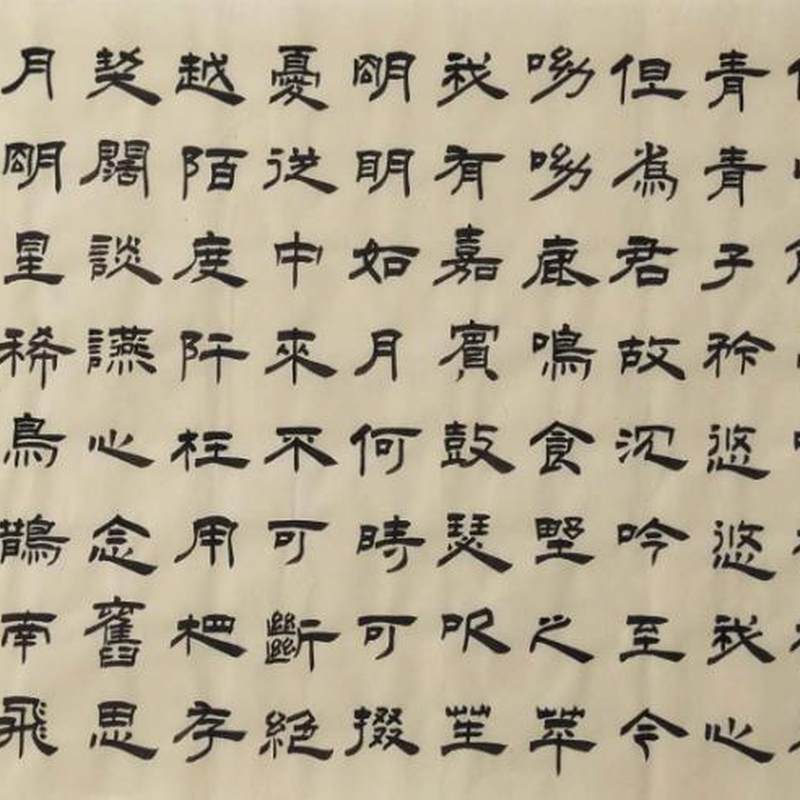 青青子衿悠悠我心
但爲君故沉吟至今
呦呦鹿鳴食野之苹
我有嘉賓鼓瑟吹笙
明明如月何時可掇
憂從中來不可斷絕
越陌度阡枉用相存
契闊談讌心念舊恩
月明星稀烏鵲南飛